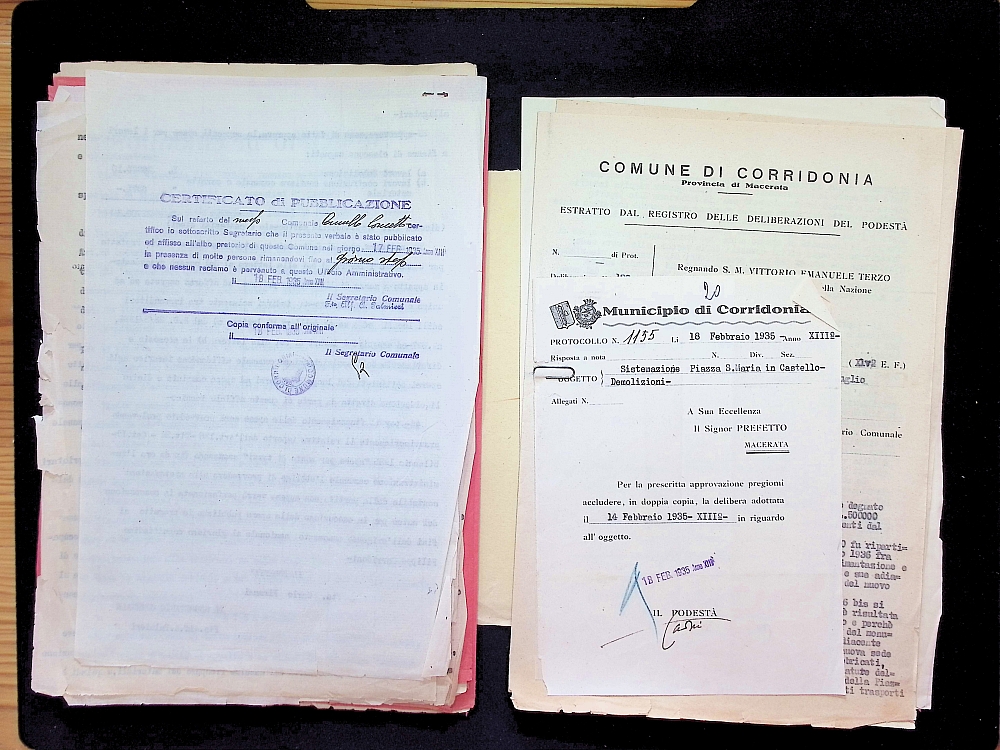 CERTIFICATO di PUBBLICAZIONE
Sul referto del messo Comunale cer-
tifico io sottoscritto Segretario che il presente verbale è stato pubblicato
ed affisso all'albo pretorio di questo Comune nel giorno 17 FEB. 1935 Anno XIII
la presenza di molte persone rimanendovi fino al giorno stesso
e che nessun reclamo è pervenuto a questo Ufficio Amministrativo.
li 18 FEB. 1935 Anno XIII
Il Segretario Comunale
Copia conforme all'originale
li 18 FEB. 1935
Il Segretario Comunale
COMUNE DI CORRIDONIA
Provincia di Macerata
ESTRATTO DAL REGISTRO DELLE DELIBERAZIONI DEL PODESTÀ
N. di Prot.
Regnando S. M. VITTORIO EMANUELE TERZO
ella Nazione
20
Municipio di Corridonia
PROTOCOLLO N. 1155 Li 18 Febbraio 1935 - Anno XIIIº-
Risposta a nota N. Div. Sez.
OGGETTO } Sistemazione Piazza S.Maria in Castello-
Demolizioni-
Allegati N.
A Sua Eccellenza
Il Signor PREFETTO
MACERATA
Per la prescritta approvazione pregiomi
accludere, in doppia copia, la delibera adottata
il 14 Febbraio 1935- XIIIº- in riguardo
all' oggetto.
18 FEB. 1935 Anno XIIIº
IL PODESTÀ
E. F.)
uglio
rio Comunale
degnato
.500000
nti dal
fu riparti=
1936 fra
imentazione e
e sue adia=
del nuovo
6 bis si
è risultata
o e perchè
del monu=
diacente
nuova sede
bricati,
ature del=
della Pian=
ti trasporti